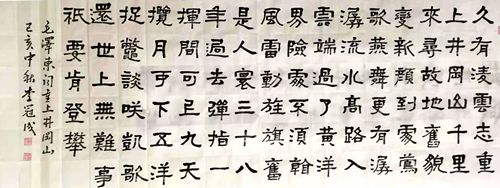 久有淩雲志重
上井岡山千里
來尋故地舊貌
變新顏到處鶯
歌燕舞更有潺
潺流水高路入
雲端過了黃洋
界險處不須看
風雷動旌旗奮
是人寰三十八
年過去彈指一
揮間可上九天
攬月可下五洋
捉鱉談咲凱歌
還世上無難事
祇要肯登攀
毛澤東詞重上井岡山
己亥中秋李冠成